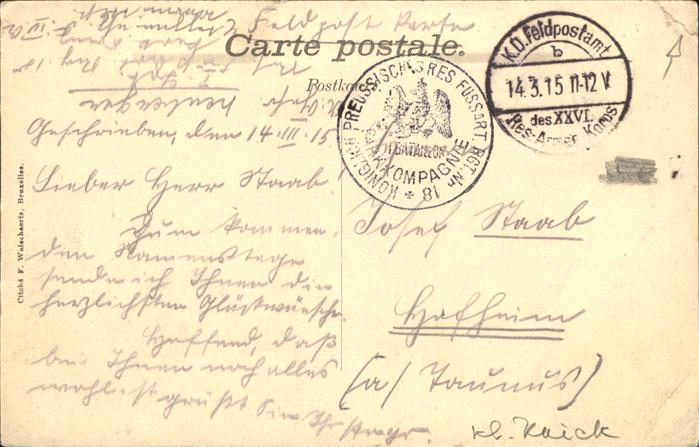 Feldpost karte
Carte postale.
Postkarte
K.D. Feldpostamt
b
14.3.15 11-12 V
des XXVI.
Res.-Armee Korps
KÖNIGLICH PREUSSISCHES RES. FUSSART. RGT. No 18
BATAILLON
KOMPAGNIE
Geschrieben, den 14 III. 15
Lieber Herr Staab!
Zum kommen-
den Namenstage
sende ich Ihnen die
herzlichsten Glückwünsche.
Hoffend, daß
bei Ihnen noch alles
wohl ist grüßt Sie Ihr
Josef Staab
Hofheim
(a/ Taunus)
Cliché F. Walschaerts, Bruxelles.